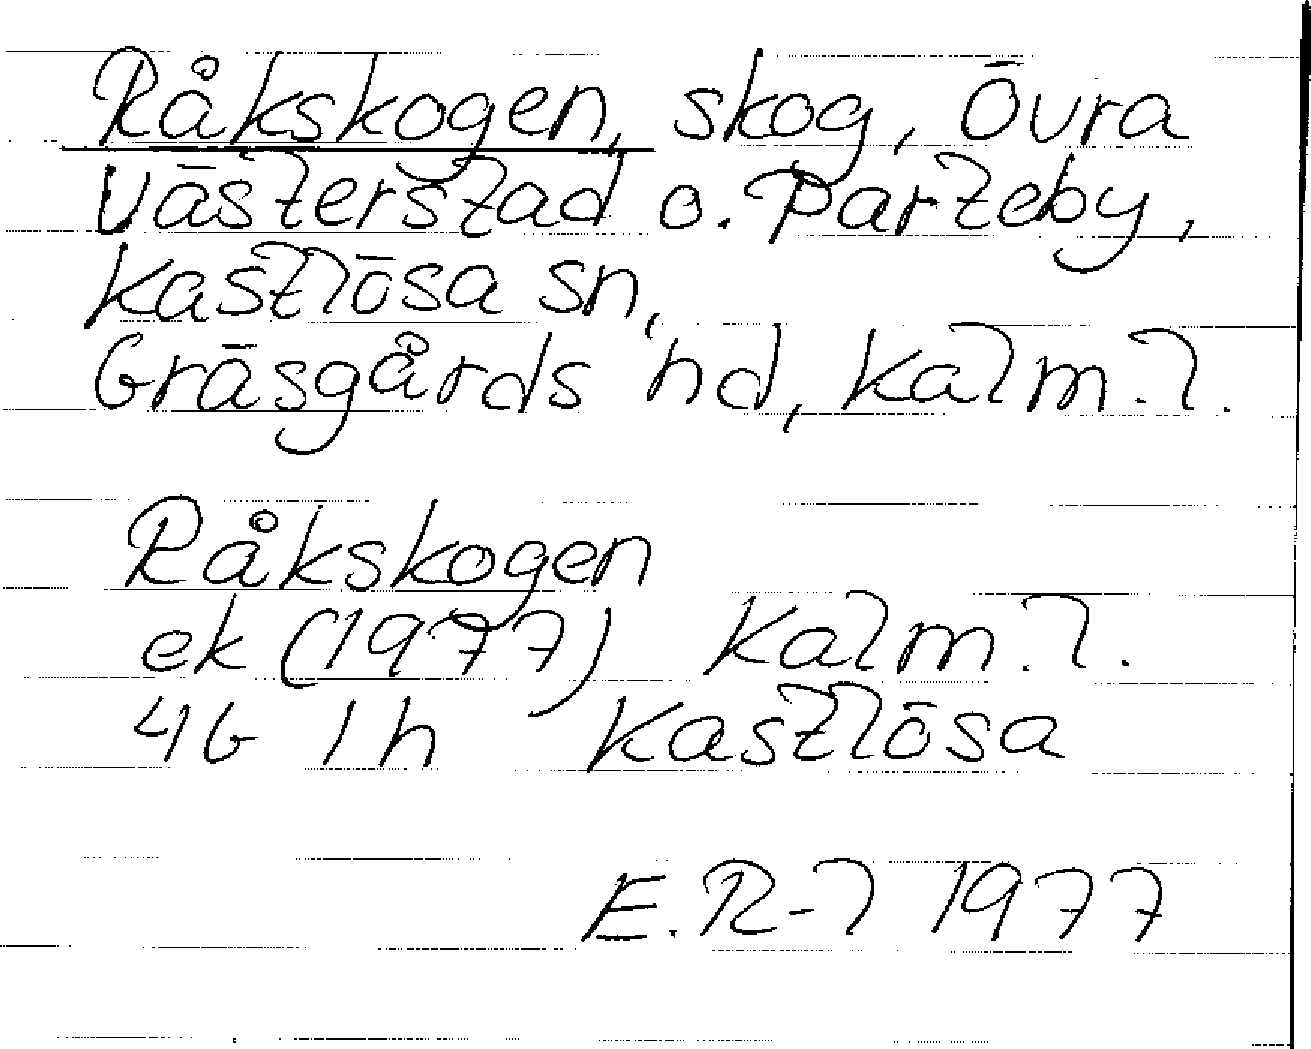 Råkskogen, skog, Övra
Västerstad o. Parteby,
Kastlösa sn,
Gräsgårds hd, Kalm. l.
Råkskogen
ek (1977) Kalm. l.
4G 1h Kastlösa
E. R-l 1977